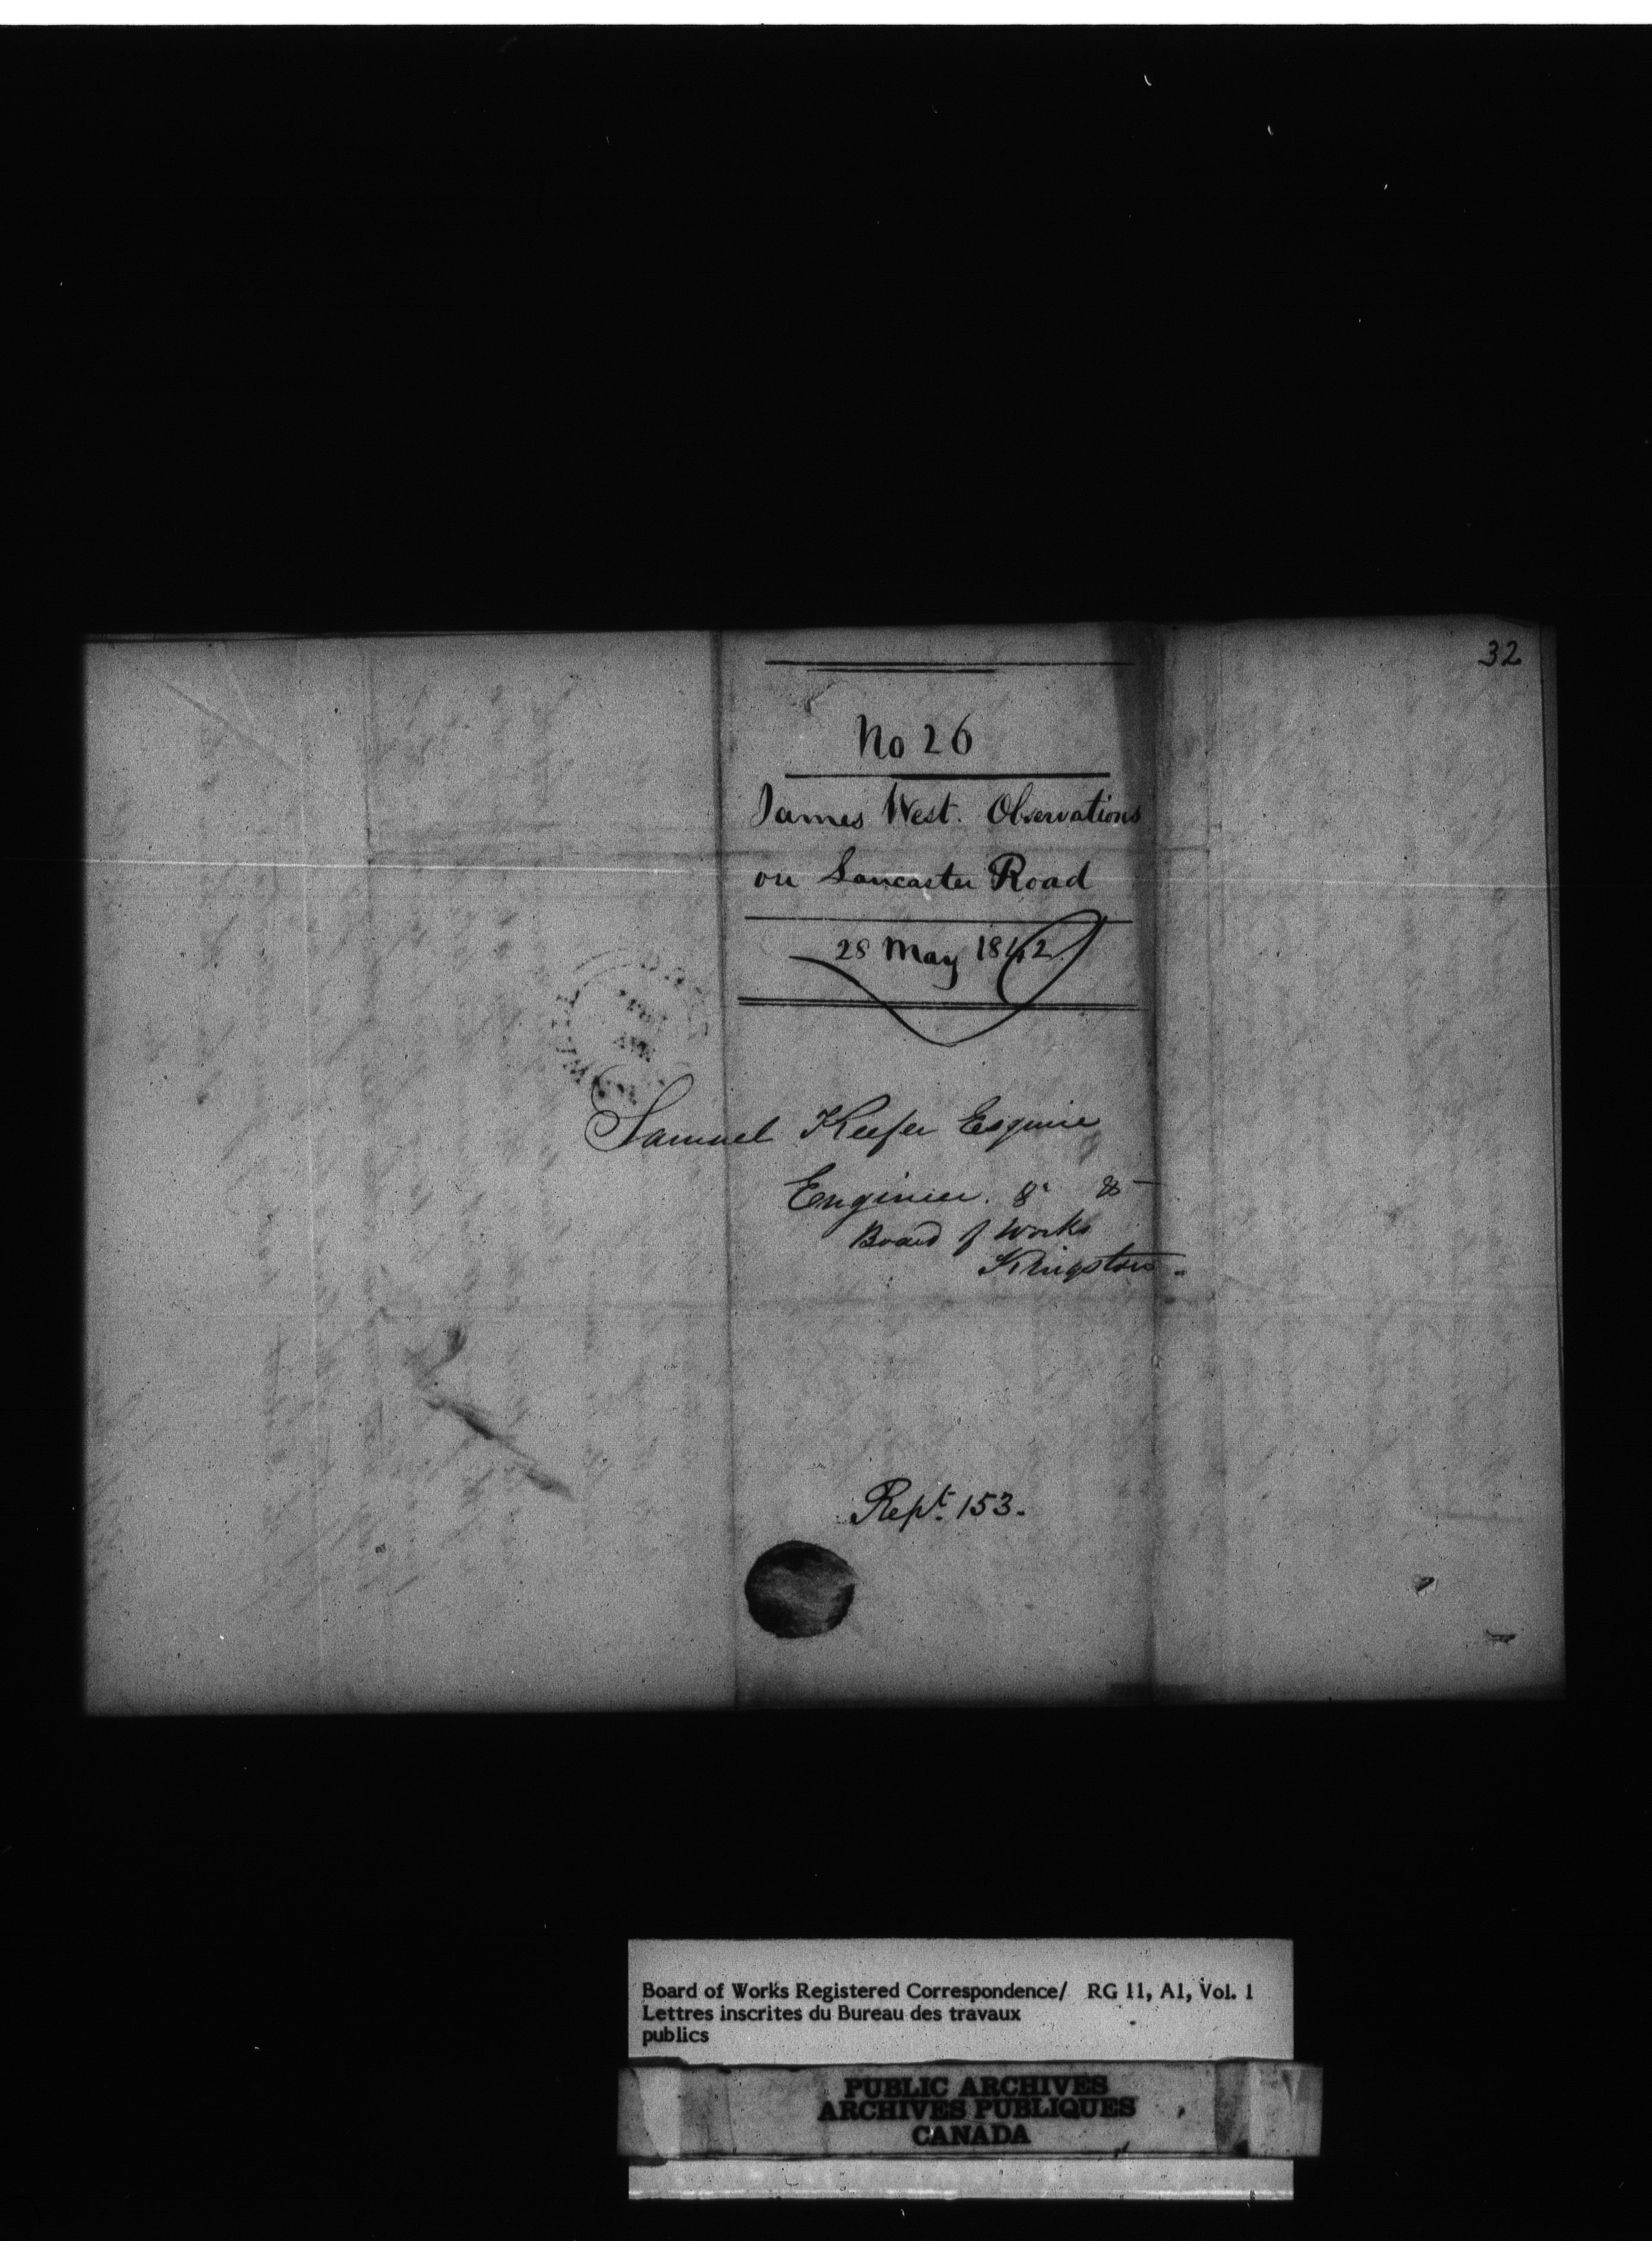 32
No 26
James West. Observations
on Lancaster Road
28 May 1842
Samuel Keefer Esquire
Engineer. & &
Board of Works
Kingston.
Rept. 153.
Board of Works Registered Correspondence/ RG 11, A1, Vol. 1
Lettres inscrites du Bureau des travaux
publics
PUBLIC ARCHIVES
ARCHIVES PUBLIQUES
CANADA